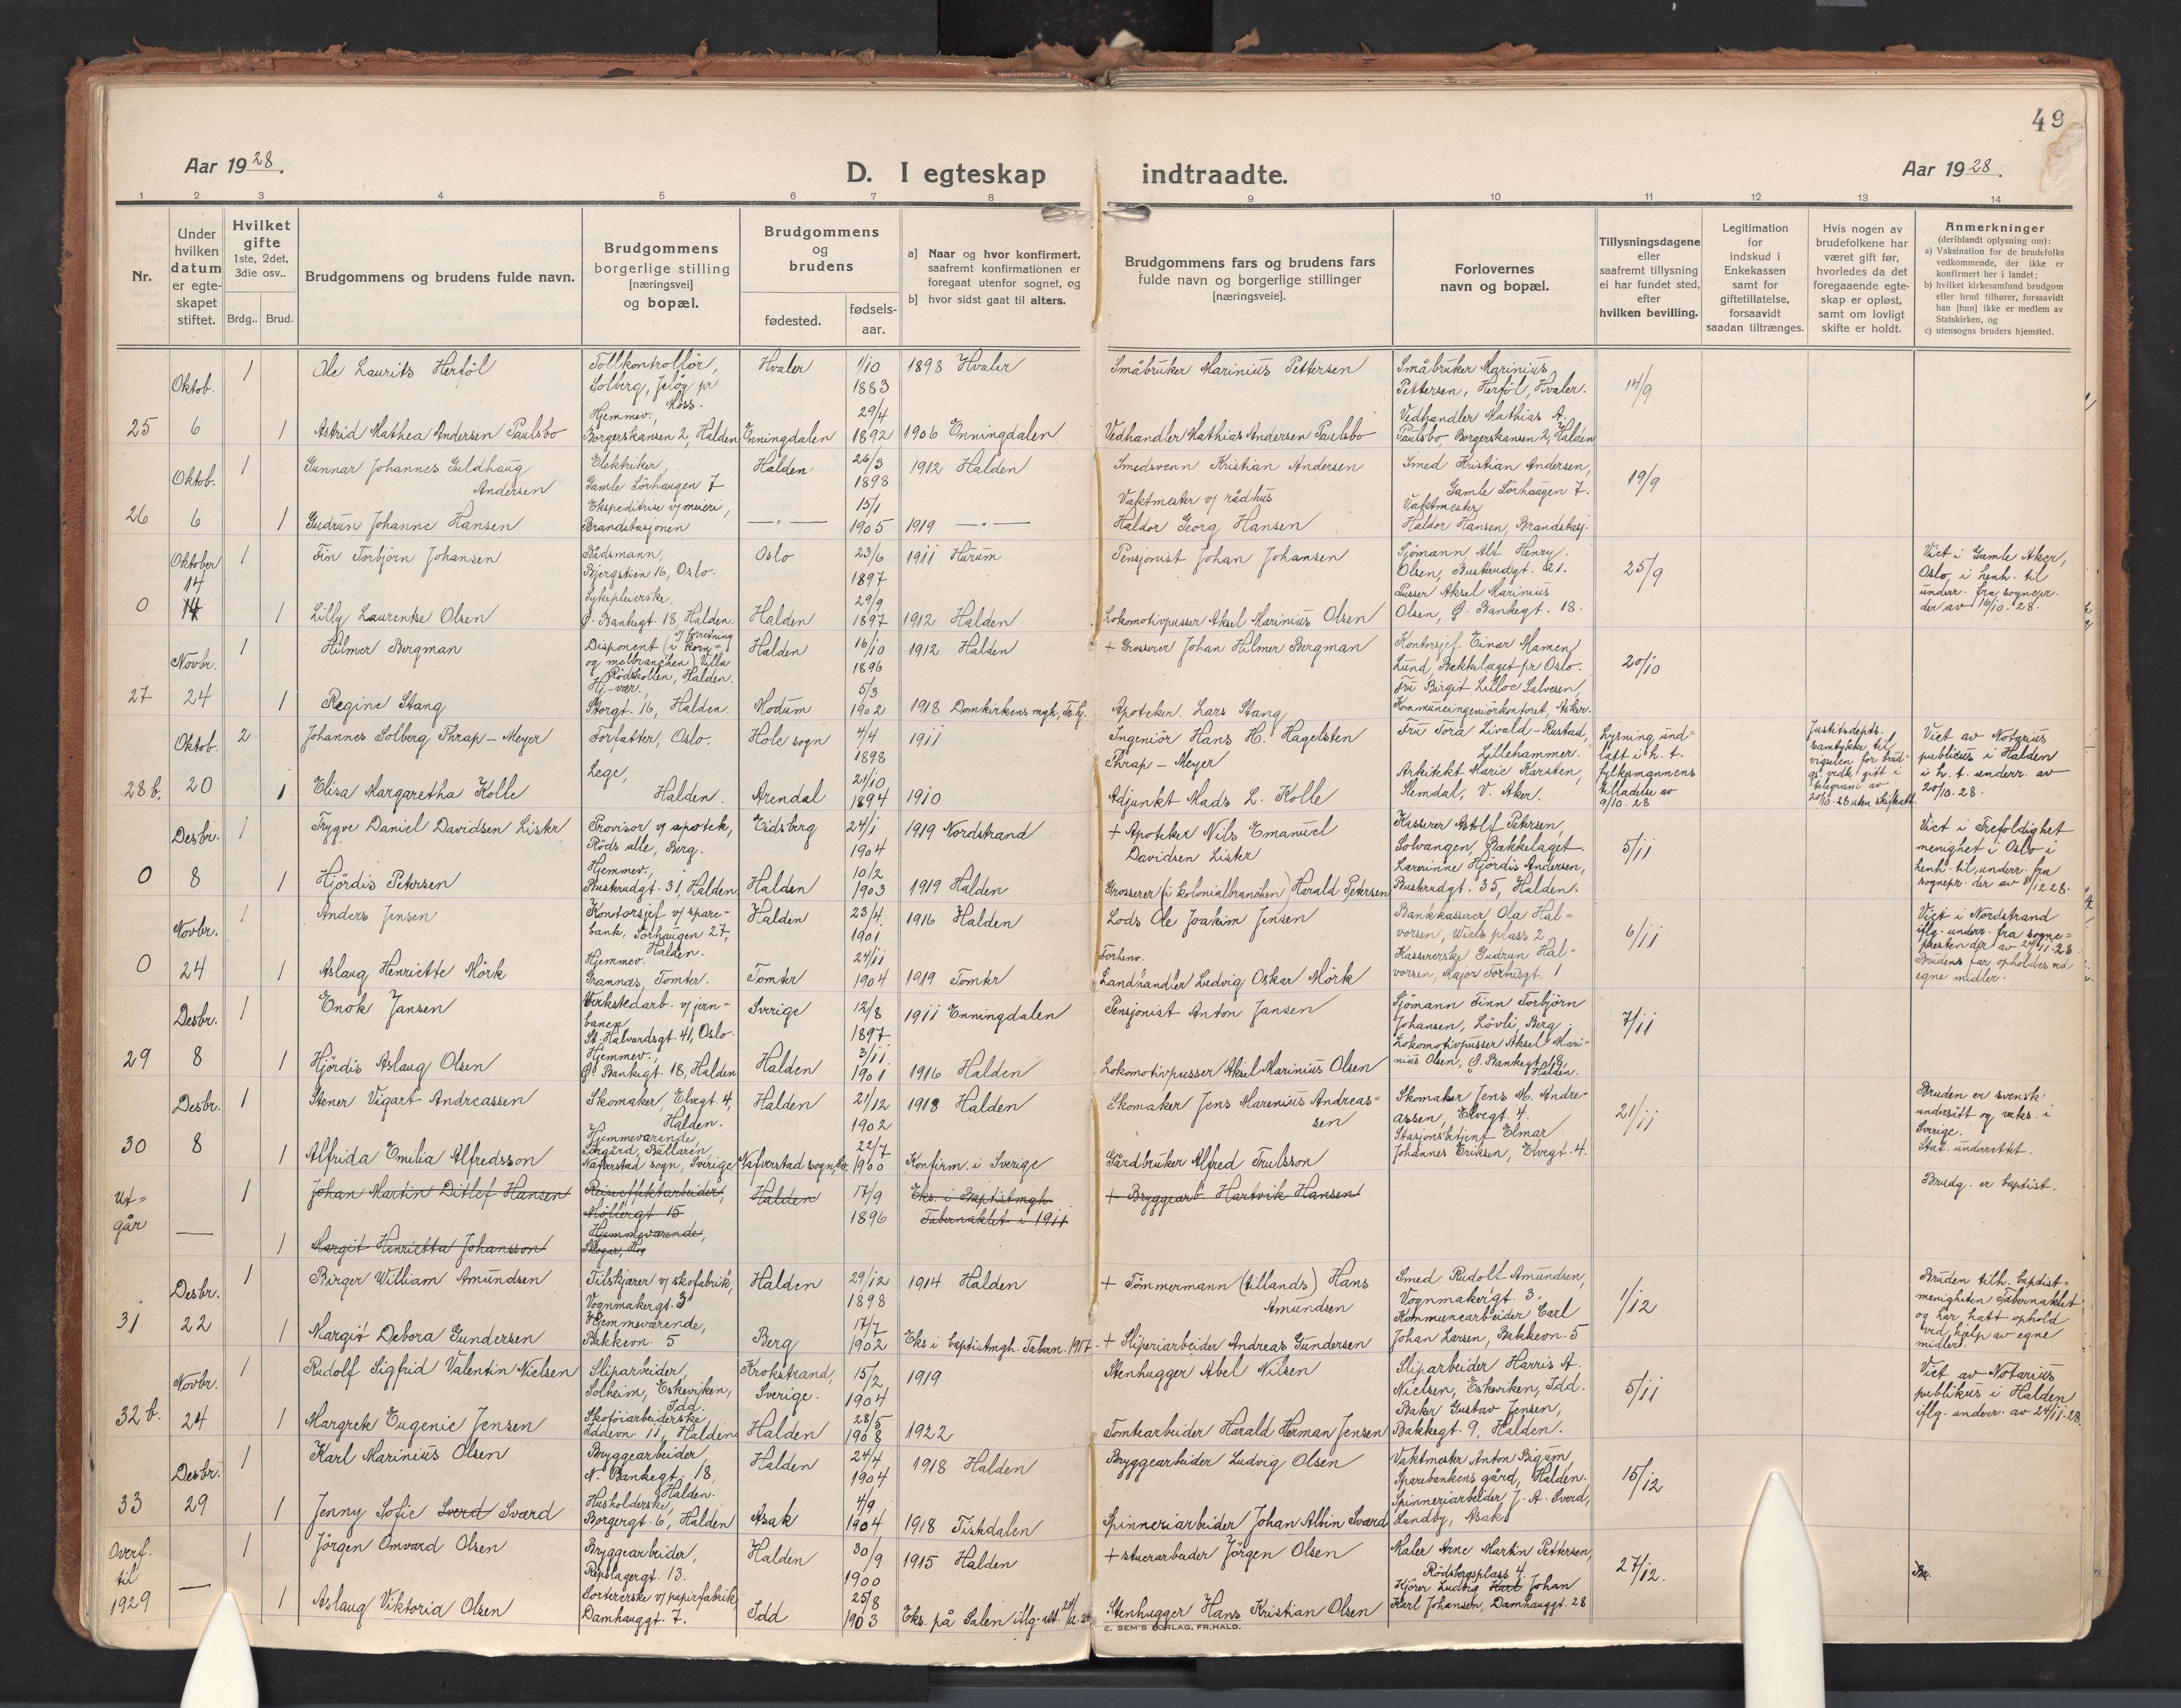 49
Aar 1928.
D. I egteskap indtraadte.
Aar 1928.
1 2 3 4 5 6 7 8 9 10 11 12 13 14
Nr.
Under hvilken datum er egte-skapet stiftet.
Hvilket gifte 1ste, 2det, 3die osv..
Brdg.. Brud.
Brudgommens og brudens fulde navn.
Brudgommens borgerlige stilling [næringsvei] og bopæl.
Brudgommens og brudens
fødested.
fødsels-aar.
a] Naar og hvor konfirmert, saafremt konfirmationen er foregaat utenfor sognet, og
b] hvor sidst gaat til alters.
Brudgommens fars og brudens fars fulde navn og borgerlige stillinger [næringsveie].
Forlovernes navn og bopæl.
Tillysningsdagene eller saafremt tillysning ei har fundet sted, efter hvilken bevilling.
Legitimation for indskud i Enkekassen samt for giftetillatelse, forsaavidt saadan tiltrænges.
Hvis nogen av brudefolkene har været gift før, hvorledes da det foregaaende egte-skap er opløst, samt om lovligt skifte er holdt.
Anmerkninger (deriblandt oplysning om):
a) Vaksination for de brudefolks vedkommende, der ikke er konfirmert her i landet;
b) hvilket kirkesamfund brudgom eller brud tilhører, forsaavidt han [hun] ikke er medlem av Statskirken, og
c) utensogns bruders hjemsted.
Oktob. 1 Ole Laurits Herföl Tollkontrollör, Solberg, Jelöy pr Moss. Hvaler 1/10 1883 1898 Hvaler Småbruker Marinius Pettersen Småbruker Marinius Pettersen, Herföl, Hvaler. 14/9
25 6 1 Astrid Mathea Andersen Paulsbo Hjemmev., Borgerskansen 2, Halden Enningdalen 29/4 1892 1906 Enningdalen Vedhandler Mathias Andersen Paulsbo Vedhandler Mathias A. Paulsbo, Borgerskansen 2, Halden
Oktob. 1 Gunnar Johannes Guldhaug Andersen Elektriker, Gamle Sörhaugen 7 Halden 26/3 1898 1912 Halden Smedsvenn Kristian Andersen Smed Kristian Andersen, Gamle Sörhaugen 7. 19/9
26 6 1 Gudrun Johanne Hansen Ekspeditrise v/ meieri, Brandstasjonen — " — 15/1 1905 1919 — " — Vaktmester v/ rådhus Haldor Georg Hansen Vaktmester Haldor Hansen, Brandstasj.
Oktober 14 1 Fin Torbjörn Johansen Bådsmann, Bjergstien 16, Oslo. Oslo 23/6 1897 1911 Hurum Pensjonist Johan Johansen Sjömann Alf Henry Olsen, Busterudgt. 21. 25/9 Viet i Gamle Aker, Oslo, i henh. til underr. fra sognepr. der av 16/10-28.
0 14 1 Lilly Laurentse Olsen Sykepleierske, Ø. Bankegt 18, Halden. Halden 29/9 1897 1912 Halden Lokomotivpusser Aksel Marinius Olsen Pusser Aksel Marinius Olsen, Ø. Bankegt. 18.
Novbr. 1 Hilmer Bergman Disponent (v/ forretning i korn- og melbranchen) Villa Rödskollen, Halden. Halden 16/10 1896 1912 Halden + Grosserer Johan Hilmer Bergman Kontorsjef Einar Mamen Lund, Bækkelaget pr Oslo. 20/10
27 24 1 Regine Stang Hj.-vær., Storgt. 16, Halden. Modum 5/3 1902 1918 Domkirkens mgh., Fr.hj. Apoteker Lars Stang Fru Birgit Lilloe Salvesen, Kommuneingeniörkontoret, Asker.
Oktob. 2 Johannes Solberg Thrap-Meyer Forfatter, Oslo. Hole sogn 4/4 1898 1911 Ingeniör Hans H. Hagelsten Thrap-Meyer Fru Tora Livald-Rustad, Lillehammer. Lysning und-latt i h. t. fylkesmannens tilladelse av 9/10-28 Justisdepts. samtykke til vigselen for brud-g. vedk gitt i telegram av 20/10-28 uten skifteatt. Viet av Notarius publicus i Halden i h. t. underr. av 20/10-28.
28 b. 20 1 Elisa Margaretha Kolle Lege, Halden. Arendal 21/10 1894 1910 Adjunkt Mads L. Kolle Arkitekt Marie Karsten, Slemdal, V. Aker.
Desbr. 1 Trygve Daniel Davidsen Lister Provisor v/ apotek, Röds alle, Berg. Eidsberg 24/1 1904 1919 Nordstrand + Apoteker Nils Emanuel Davidsen Lister Kasserer Astolf Petersen, Solvangen, Bækkelaget. 5/11 Viet i Trefoldighet menighet i Oslo i henh. til underr. fra sognepr. der av 8/12 28.
0 8 1 Hjördis Petersen Hjemmev., Busterudgt. 31, Halden Halden 10/2 1903 1919 Halden Grosserer (i kolonialbranchen) Harald Petersen Lærerinne Hjördis Andersen, Busterudgt. 35, Halden.
Novbr. 1 Anders Jensen Kontorsjef v/ spare-bank, Sörhaugen 27, Halden. Halden 23/4 1901 1916 Halden Lods Ole Joakim Jensen Bankkasserer Ola Hal-vorsen, Wiels plass 2, 6/11 Viet i Nordstrand iflg. underr. fra sogne-presten der av 24/11-28. Brudens far opholdes ved egne midler.
0 24 1 Aslaug Henriette Mörk Hjemmev. Grannæs, Tomter. Tomter 24/11 1904 1919 Tomter Forhenv. Landhandler Ludvig Oskar Mörk Kassererske Gudrun Hal-vorsen, Major Forbusgt. 1
Desbr. 1 Enok Jansen Verkstedarb. v/ jern-banen, St. Halvardsgt. 41, Oslo. Sverige 12/8 1897 1911 Enningdalen Pensjonist Anton Jansen Sjömann Finn Torbjörn Johansen, Lövli, Berg. 7/11
29 8 1 Hjördis Aslaug Olsen Hjemmev., Ø. Bankegt. 18, Halden Halden 3/11 1901 1916 Halden Lokomotivpusser Aksel Marinius Olsen Lokomotivpusser Aksel Mari-nius Olsen, Ø. Bankegt. 18, Halden.
Desbr. 1 Stener Vigart Andreassen Skomaker, Elvegt. 4, Halden. Halden 21/12 1902 1918 Halden Skomaker Jens Marenius Andreas-sen Skomaker Jens M. Andre-assen, Elvegt. 4. 21/11 Bruden er svensk undersått og vaks. i Sverige. Stat. underrettet.
30 8 1 Alfrida Emilia Alfredsson Hjemmeværende, Bullaren, Naverstad sogn, Sverige Naverstad sogn, Sv. 22/7 1900 Konfirm. i Sverige Gårdbruker Alfred Trulsson Stasjonsbetjent Elmar Johannes Eriksen, Elvegt. 4.
Ut-går — 1 Johan Martin Ditlef Hansen Reiseeffektarbeider, Möllergt 15 Halden 17/9 1896 Eks. i Baptistmgh. Tabernaklet i 1911 + Bryggearb. Hartvik Hansen Brudg. er baptist.
1 Margit Henrietta Johansson Hjemmeværende,
Desbr. 1 Birger William Amundsen Tilskjærer v/ skofabrik, Vognmakergt. 3 Halden 29/12 1898 1914 Halden + Tömmermann (tillands) Hans Amundsen Smed Rudolf Amundsen, Vognmakergt. 3. 1/12 Bruden tilh. baptist-menigheten Tabernaklet og har hatt ophold ved hjelp av egne midler.
31 22 1 Margit Debora Gundersen Hjemmeværende, Bakkevn. 5 Berg 17/7 1902 Eks i baptistmgh. Tabern. 1917. + Sliperiarbeider Andreas Gundersen Kommunearbeider Carl Johan Larsen, Bakkevn. 5
Novbr. 1 Rudolf Sigfrid Valentin Nielsen Sliparbeider, Solheim, Eskeviken, Idd. Krokstrand, Sverige. 15/2 1904 1919 Stenhugger Abel Nilsen Sliparbeider Harris A. Nielsen, Eskeviken, Idd. 5/11 Viet av Notarius publikus i Halden iflg. underr. av 24/11-28.
32 b. 24 1 Margrete Eugenie Jensen Skotöiarbeiderske Iddevn. 11, Halden Halden 28/5 1908 1922 Tomtearbeider Harald Herman Jensen Baker Gustav Jensen, Bakkegt. 9, Halden.
Desbr. 1 Karl Marinius Olsen Bryggearbeider N. Bankegt. 18, Halden. Halden 24/4 1904 1918 Halden Bryggearbeider Ludvig Olsen Vaktmester Anton Bigum, Sparebankens gård, Halden. 15/12
33 29 1 Jenny Sofie Sverd Sværd Husholderske, Borgergt. 6, Halden Asak 4/9 1904 1918 Tistedalen Spinneriarbeider Johan Albin Sværd Spinneriarbeider J. A. Sverd, Lundby, Asak
Overf. til 1929 — 1 Jörgen Omvard Olsen Bryggearbeider, Repslagergt. 13. Halden 30/9 1900 1915 Halden + stuerarbeider Jörgen Olsen Maler Arne Martin Pettersen, Rödsbergsplass 4. 27/12.
1 Aslaug Viktoria Olsen Sortererske v/ papirfabrik Damhauggt. 7. Idd 25/8 1903 Eks. på Salen iflg. att. Stenhugger Hans Kristian Olsen Kjörer Ludvig Karl Johan Karl Johansen, Damhauggt. 28
E. SEM'S FORLAG, FR.HALD.